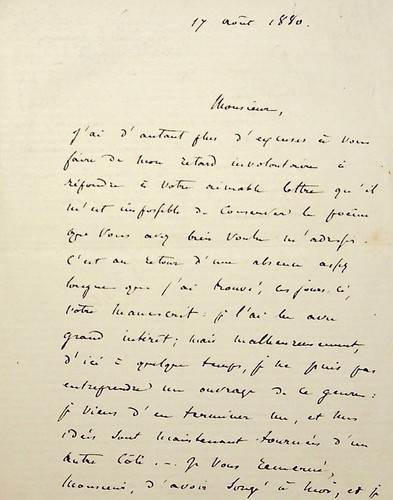 17 août 1880.
Monsieur,
J'ai d'autant plus d'excuses à vous
faire de mon retard involontaire à
répondre à votre aimable lettre qu'il
m'est impossible de conserver le poème
que vous avez bien voulu m'adresser.
C'est au retour d'une absence assez
longue que j'ai trouvé, ces jours-ci,
votre manuscrit : je l'ai lu avec
grand intérêt ; mais malheureusement,
d'ici à quelque temps, je ne puis pas
entreprendre un ouvrage de ce genre :
je viens d'en terminer un, et mes
idées sont maintenant tournées d'un
autre côté. — Je vous remercie,
Monsieur, d'avoir songé à moi, et je